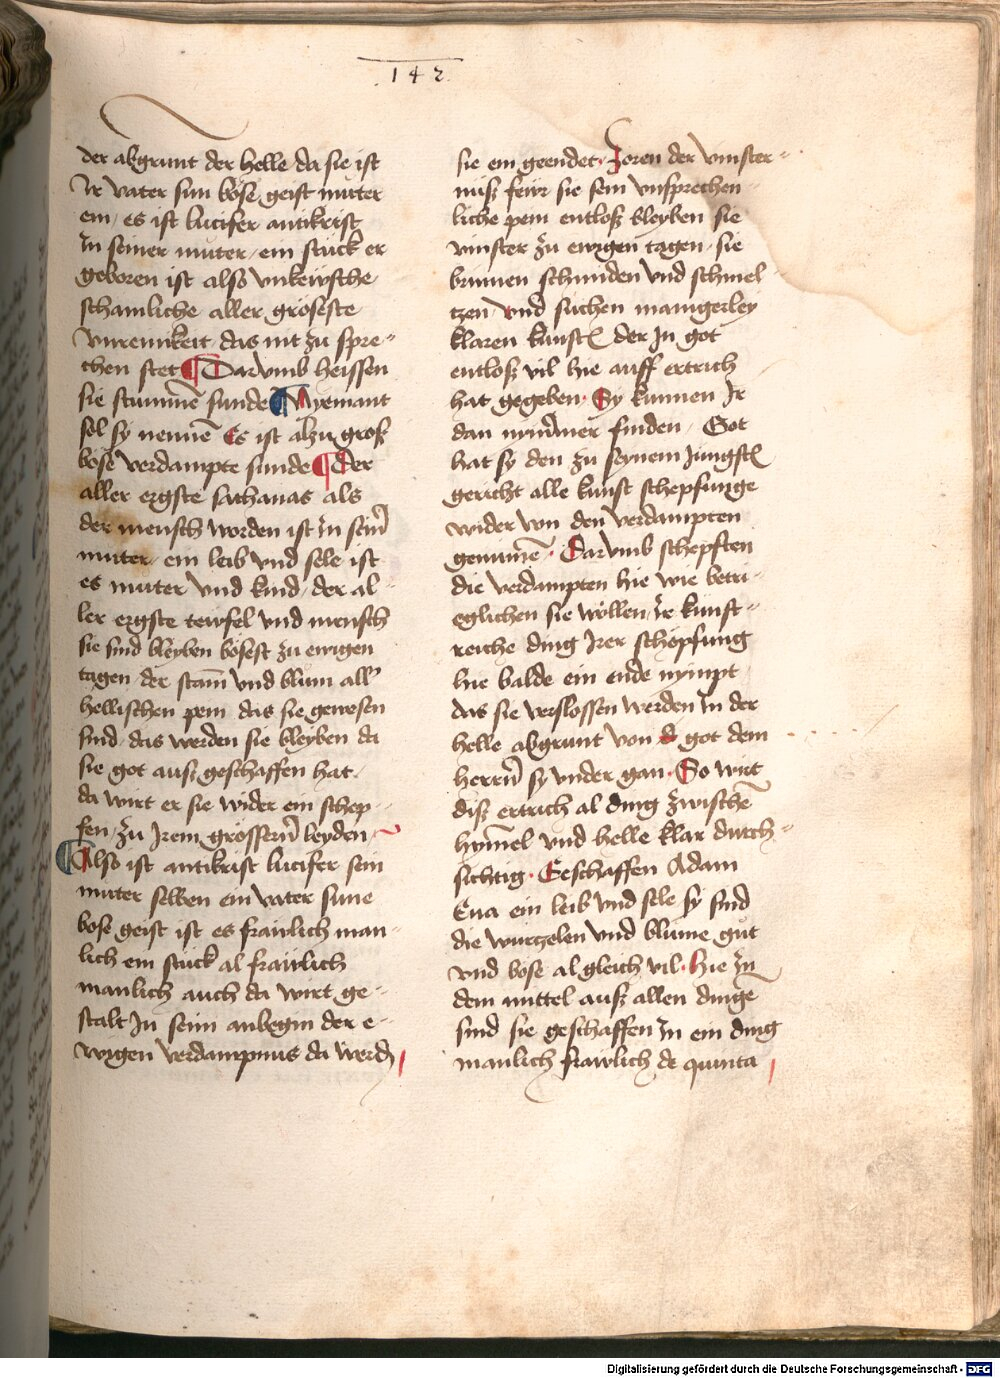 142
der abgrunt der helle da sie ist
Ir vater sun böse geist muter
ein / es ist lucifer antikrist
In seiner muter / ein stuck er
geboren ist also vnkewsche
schamliche aller gröseste
vnreinikeit das nit zu spre-
chen stet Darvmb heissen
sie stummē sunde Nyemant
sol sy nennē Es ist alzu groß
böse verdampte sunde Der
aller ergste sathanas als
der mensch worden ist in seiner
muter / ein leib vnd sele ist
es muter vnd kind / der al-
ler ergste tewfel vnd mensch
sie sind bleyben bösest zu ewigen
tagen der stam̄ vnd blum all
hellischen pein das sie gewesen
sind / das werden sie bleyben da
sie got auß geschaffen hat /
da wirt er sie wider ein schep-
fen / zu Irem grössern leyden
Also ist antikrist lucifer sein
muter selben ein vater sune
bose geist ist es frawlich man-
lich ein stuck al frawlich
manlich auch da wirt ge-
stalt In seim anbegin der e-
wigen verdampnus da werdn
sie ein geendet · Zoren der vinster-
nuß fewr sie sein vnsprechen-
liche pein entloß bleyben sie
vinster zu ewigen tagen / sie
brinnen schrinden vnd schmel-
tzen / vnd suchen manigerley
klaren kunstn der In got
entloß vil hie auff ertrich
hat gegeben · Sy kunnen Ir
dan nymmer finden / Got
hat sy den zu seynem Jungstn
gericht alle kunst schepfunge
wider von den verdampten
genumē · Darvmb schepften
die verdampten hie wie betri-
eglichen sie wöllen / Ir kunst-
reiche ding Irer schöpfung
hie balde ein ende nympt
das sie verslossen werden In der
helle abgrunt von got dem
herrn sy vnder gan · So wirt
diß ertrich al ding zwischē
hym̄el vnd helle klar durch-
sichtig · Geschaffen Adam
Eua ein leib vnd sele sy sind
die wurtzelen vnd blume gut
vnd bose al gleich vil · hie In
dem mittel auß allen dinge
sind sie geschaffen In ein ding
manlich frawlich de quinta
Digitalisierung gefördert durch die Deutsche Forschungsgemeinschaft - DFG